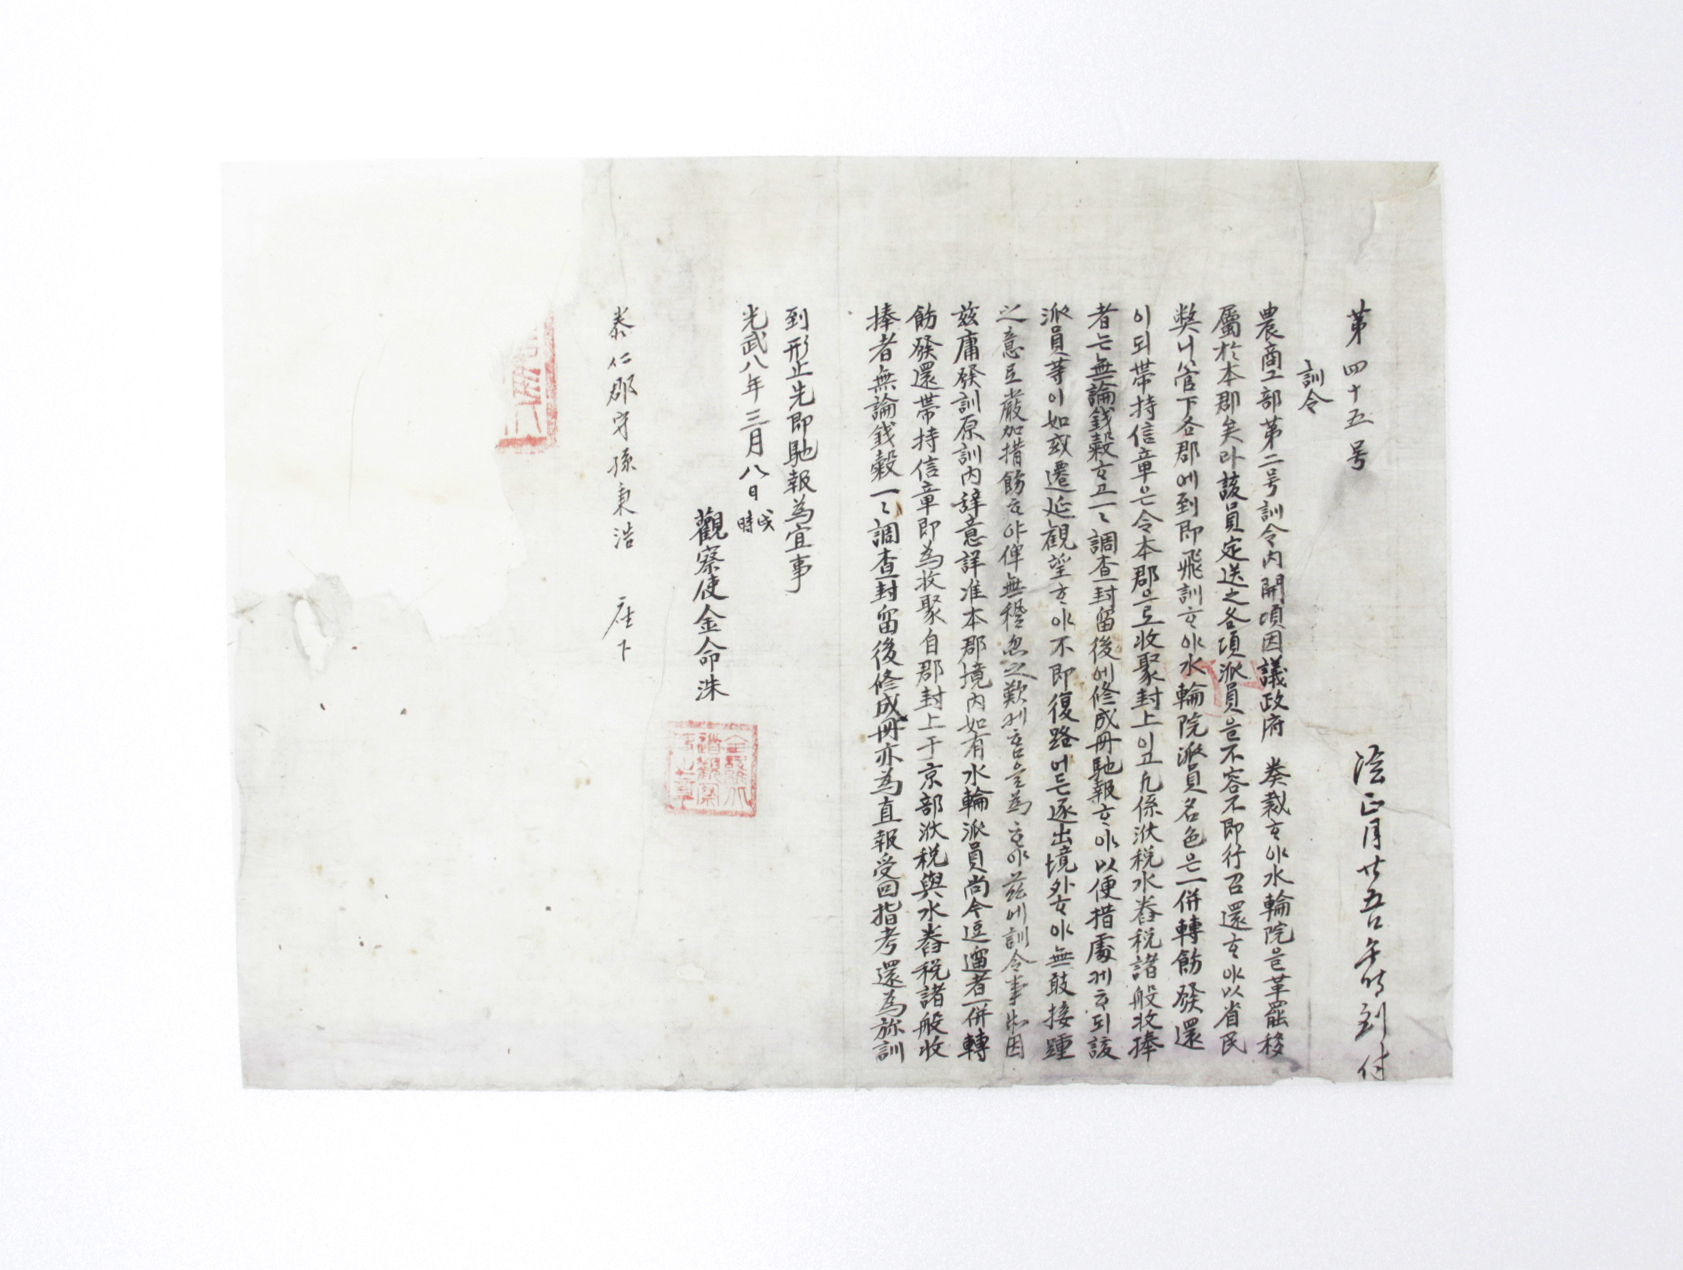 第四十五号
陰正月廿五日午時到付
訓令
農商工部第二号訓令內開頃因議政府 奏裁ᄒᆞ야水輪院은革罷移
屬於本郡矣라該員定送之各項派員을不容不卽行召還ᄒᆞ야以省民
獘니管下各郡에到卽飛訓ᄒᆞ야水輪院派員名色은一併轉飭發還
이되帶持信章은令本郡으로收聚封上이고凡係洑稅水舂稅諸般收捧
者는無論錢穀ᄒᆞ고一〻調查封留後에修成冊馳報ᄒᆞ야以便措處케ᄒᆞ되該
派員等이如或遷延觀望ᄒᆞ야不卽復路어든逐出境外ᄒᆞ야無敢接踵
之意로嚴加措飭ᄒᆞ야俾無稽忽之歎케ᄒᆞᆷ을爲ᄒᆞ야玆에訓令事因
玆庸發訓原訓內辭意詳准本郡境內如有水輪派員尙今逗遛者一併轉
飭發還帶持信章卽爲收聚自郡封上于京部洑稅與水舂稅諸般收
捧者無論錢穀一〻調查封留後修成冊亦爲直報受回指考還爲旀訓
到形止先卽馳報爲宜事
光武八年三月八日戌時
觀察使金命洙
泰仁郡守孫秉浩 座下